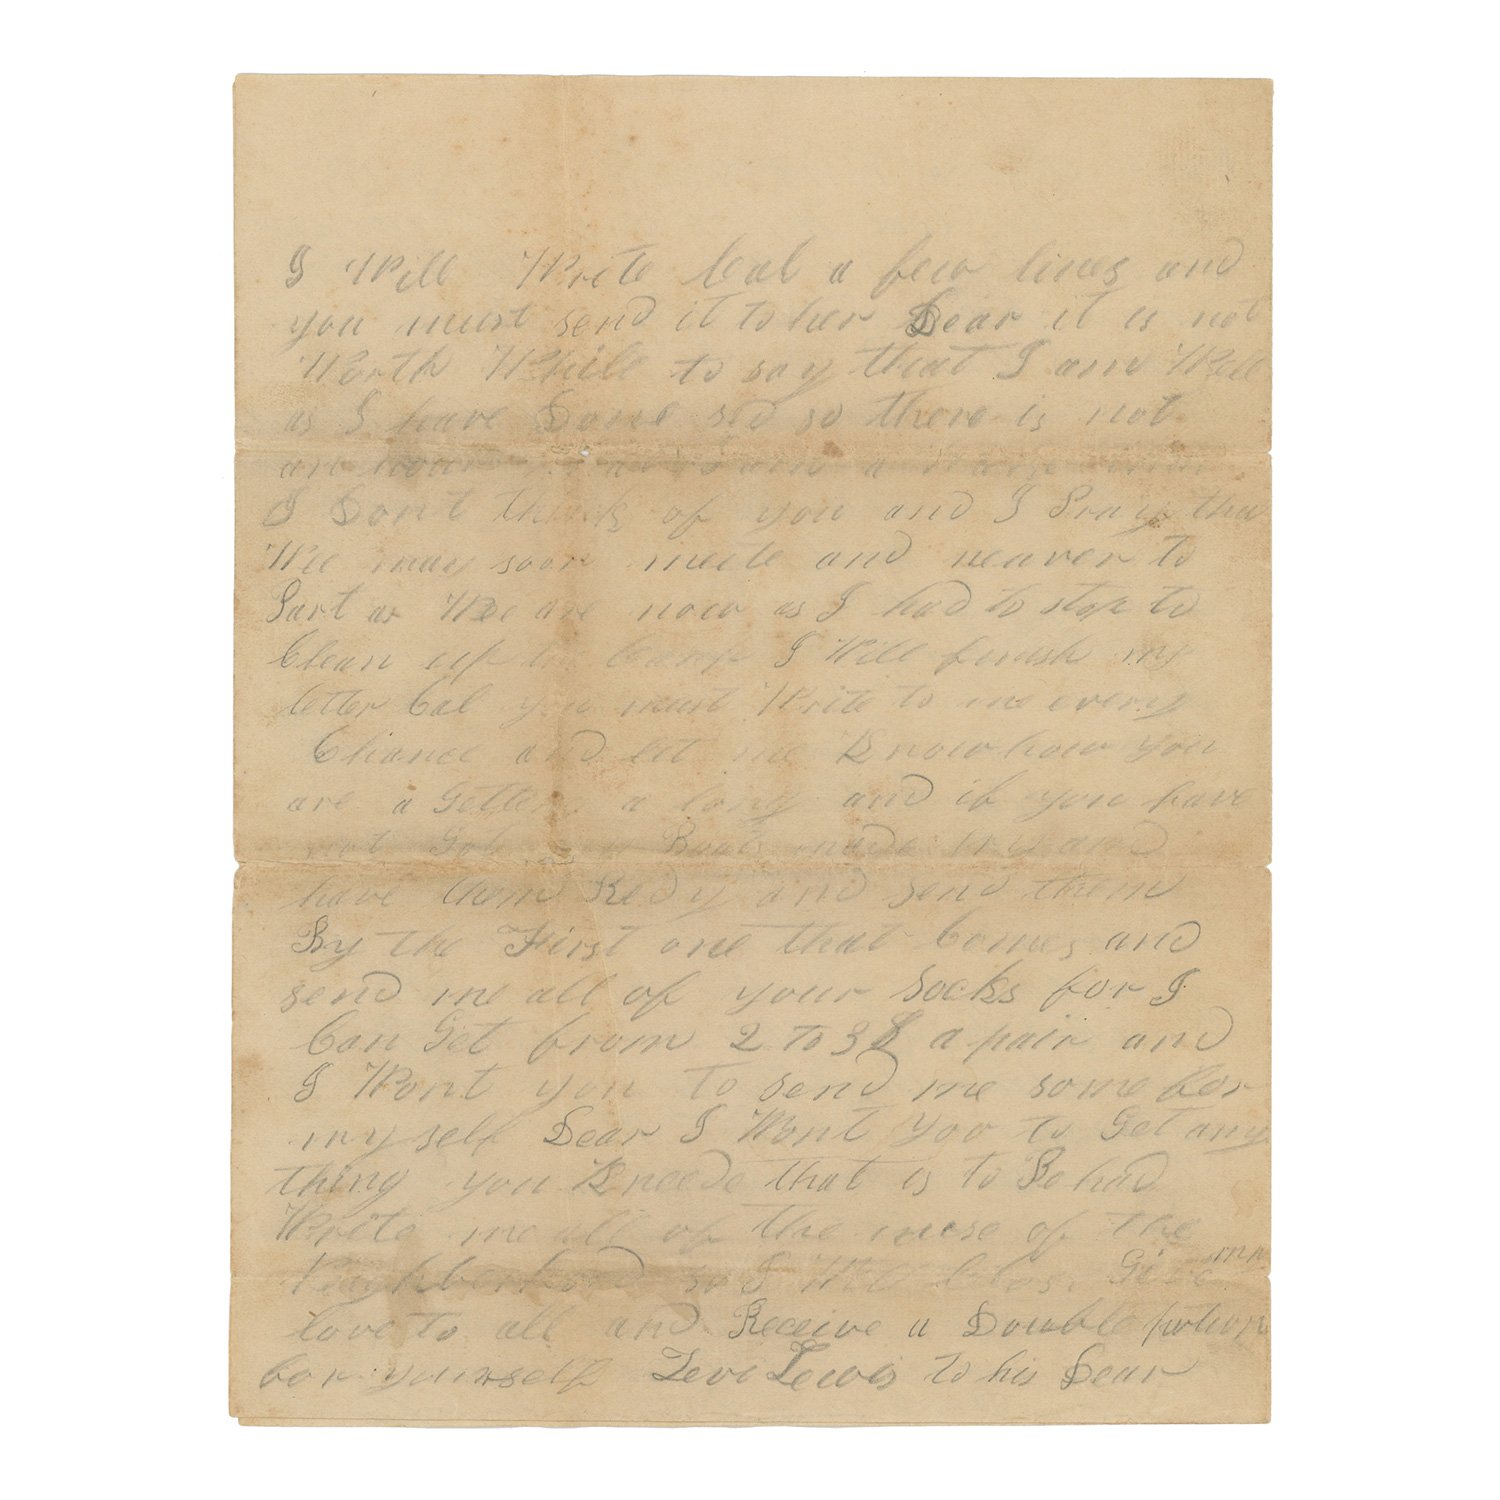 I Will Write Cal a few lines and
you must send it to her Dear it is not
Worth While to say that I am Well
as I have Done sed so there is not
an hour
I Dont think of you and I Pray tha
Wee may soon meete and neaver to
Part as Wee are now as I had to stop to
Clean up the Camp I Will finish my
letter Cal you must Write to me every
Chance and let me Know how you
are a Getten a long and if you have
not Got my Boots made try and
have them Redy and send them
By the First one that Comes and
send me all of your socks for I
Can Get from 2 to 3$ a pair and
I Wont you to send me some for
my self Dear I Wont you to Get any
thing you Kneede that is to Be had
Write me all of the nuse of the
Neighberhood so I Will Close Give mn
love to all and Receive a Double portion
for yourself Levi Lewis to his Dear